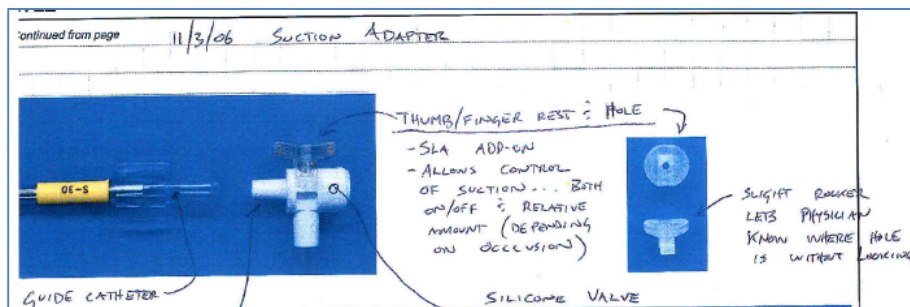 Continued from page
11/3/06 SUCTION ADAPTER
THUMB/FINGER REST & HOLE
- SLA ADD-ON
- ALLOWS CONTROL
OF SUCTION... BOTH
ON/OFF & RELATIVE
AMOUNT (DEPENDING
ON OCCLUSION)
SLIGHT ROCKER
LETS PHYSICIAN
KNOW WHERE HOLE
IS WITHOUT LOOKING
S-30
GUIDE CATHETER
SILICONE VALVE